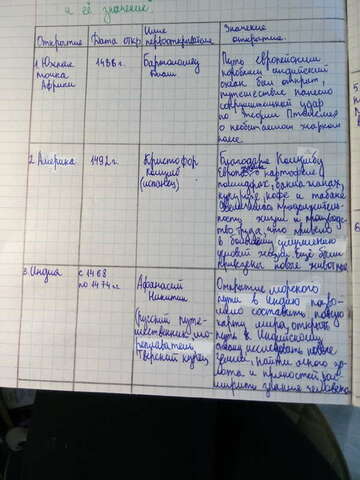 и её значение
Открытие
Дата откр
Имя
первооткрывателя
Значение
открытия.
1. Южная
точка
Африки
1486 г.
Бартоломеу
Диаш
Путь европейским
кораблям индийский
океан был открыт,
путешествие нанесло
сокрушительный удар
по теории Птолемея
о необитаемом жарком
поясе.
2. Америка
1492 г.
Христофор
Колумб
(испанец)
Благодаря Колумбу
картофеле
помидорах, баклажанах,
кукурузе, кофе и табаке
Увеличилась продолжитель-
ность жизни и производс-
тво труда, что привело
к
условий жизни. Ещё были
привезены новые животные.
3. Индия
с 1468
по 1474 г.
Афанасий
Никитин
(русский путе-
шественник, мо-
реплаватель
Тверской купец)
Открытие морского
пути в Индию позво-
лило составить новую
карту мира, открыть
путь к Индийскому
океану, исследовать новые
земли, найти много зо-
лота и пряностей, рас-
ширить знания человека